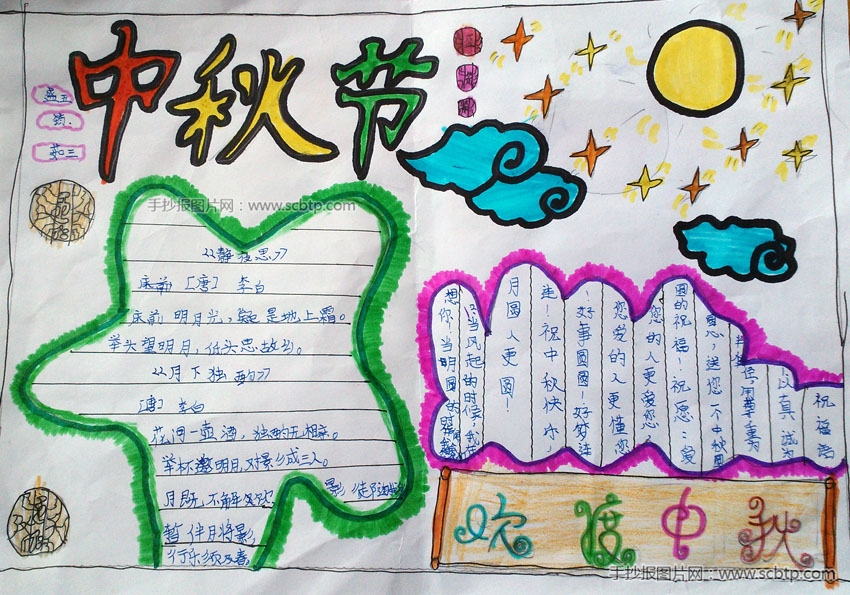 中秋节
手抄报图片网：www.scbtp.com
《静夜思》
床前［唐］李白
床前明月光，疑是地上霜。
举头望明月，低头思故乡。
《月下独酌》
［唐］李白
花间一壶酒，独酌无相亲。
举杯邀明月，对影成三人。
月既不解饮 影徒随
暂伴月将影
行乐须及春
祝福语
以真诚为
圆的祝福！祝愿：爱
您的人更爱您
您爱的人更懂您
！好事圆圆！好梦连
连！祝中秋快乐，
月圆人更圆！
只当风起的时候，我在
想你！当明圆的时
欢度中秋
手抄报图片网：www.scbtp.com